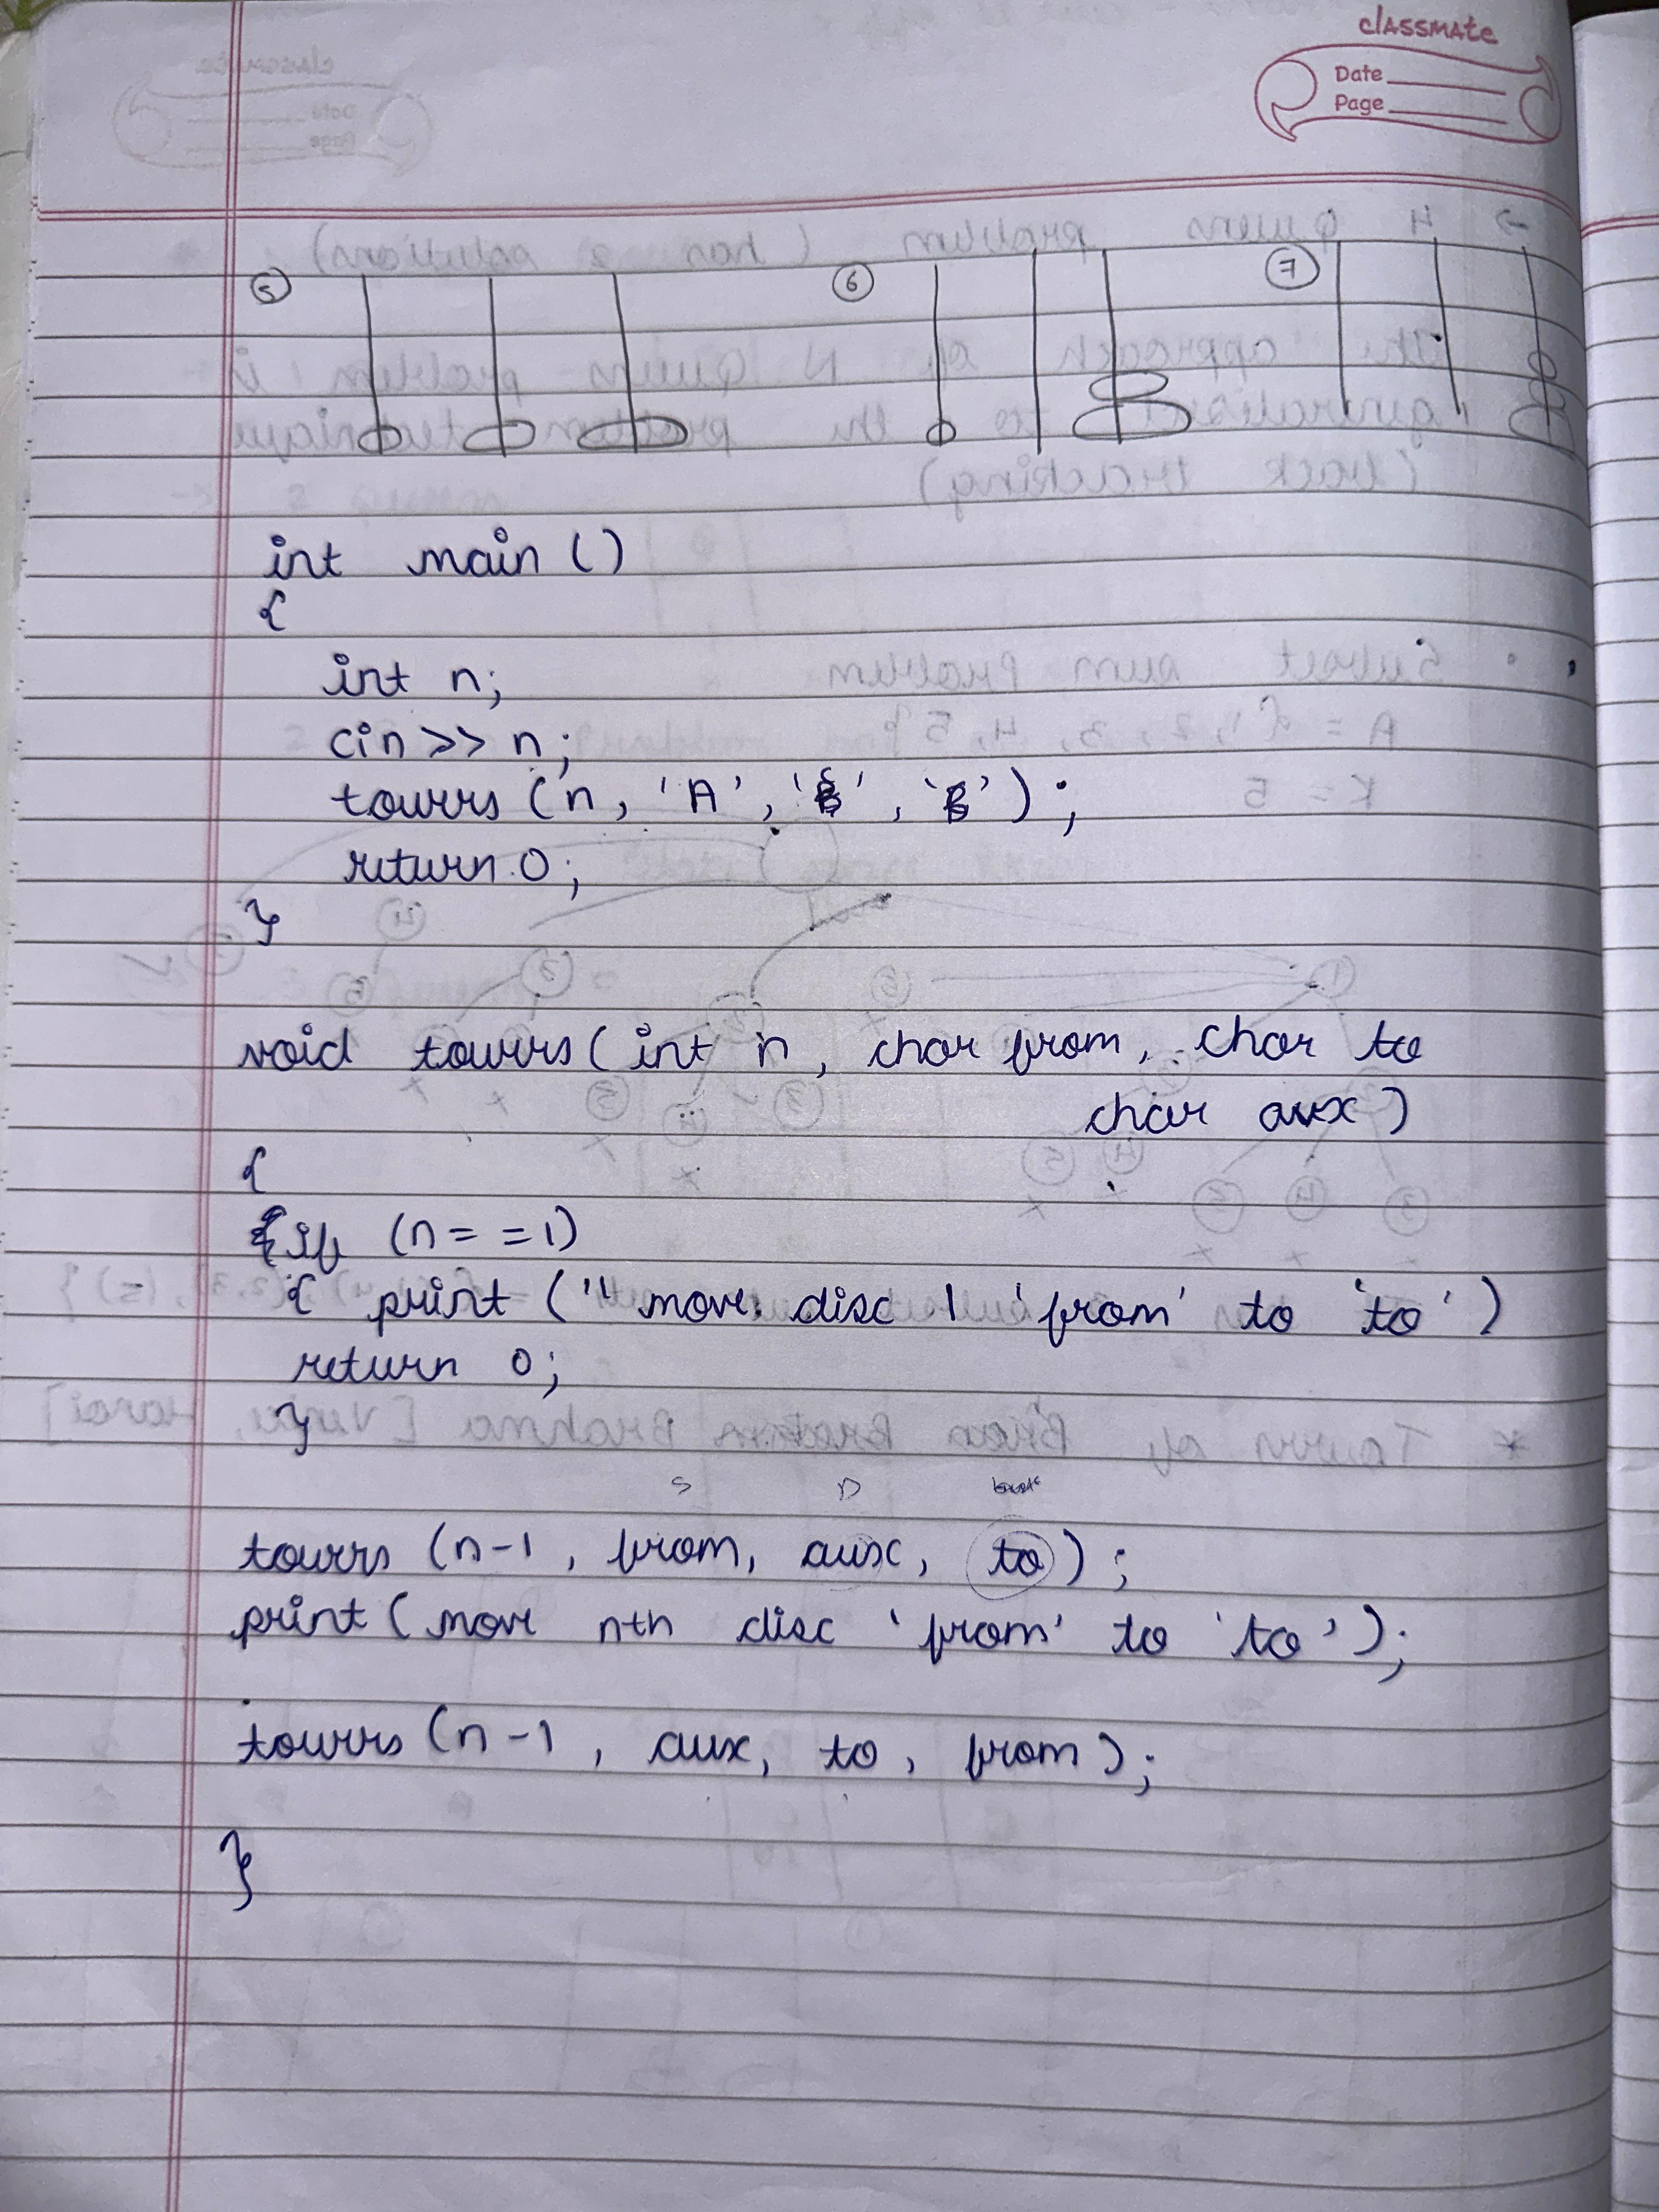 classmate
Date
Page
5 6 7
int main ()
{
int n;
cin >> n;
towers (n, 'A', 'C', 'B') ;
return 0;
}
void towers (int n, char from, char to
char aux)
{
if (n = = 1)
{ print (" move disc 1 'from' to 'to' )
return 0;
}
S D
towers (n-1, from, aux, to) ;
print ( move nth disc 'from' to 'to' ) ;
towers (n-1, aux, to, from) ;
}